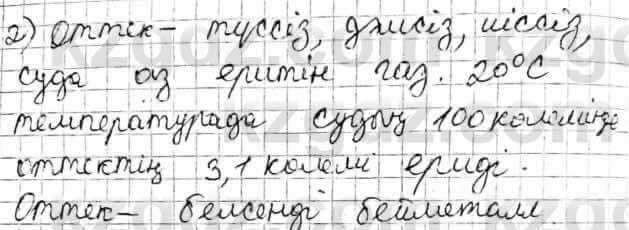 2) Оттек - түссіз, дәмсіз, иіссіз,
суда аз еритін газ. 20°C
температурада судың 100 көлемінде
оттектің 3,1 көлемі ериді.
Оттек - белсенді бейметалл